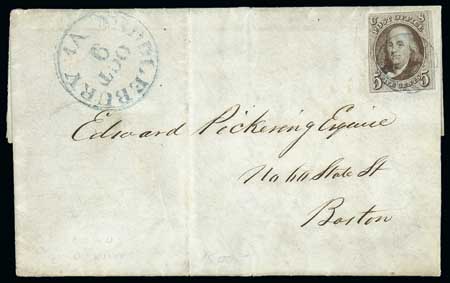 MIDDLEBURY Vt
OCT
9
U S
POST OFFICE
5 FIVE CENTS 5
Edward Pickering Esquire
No 60 State St
Boston